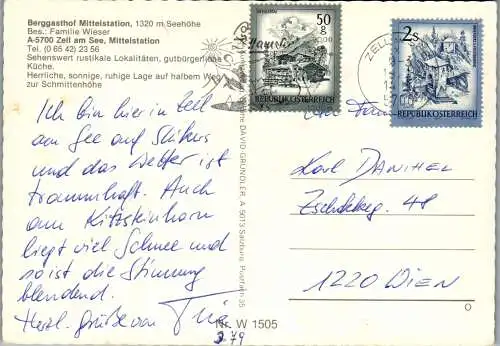 Berggasthof Mittelstation, 1320 m Seehöhe
Bes.: Familie Wieser
A-5700 Zell am See, Mittelstation
Tel. (0 65 42) 23 56
Sehenswert rustikale Lokalitäten, gutbürgerliche
Küche.
Herrliche, sonnige, ruhige Lage auf halbem Weg
zur Schmittenhöhe
50
g
REPUBLIK ÖSTERREICH
2s
REPUBLIK ÖSTERREICH
ZELL
5700
Ich bin hier in Zell
am See auf Skikurs
und das Wetter ist
traumhaft. Auch
am Kitzsteinhorn
liegt viel Schnee und
so ist die Stimmung
blendend.
Herzl. Grüße von
79
DAVID GRÜNDLER, A 5013 Salzburg, Postfach 35
Nr. W 1505
An Fam
Karl DANIHEL
48
1220 WIEN